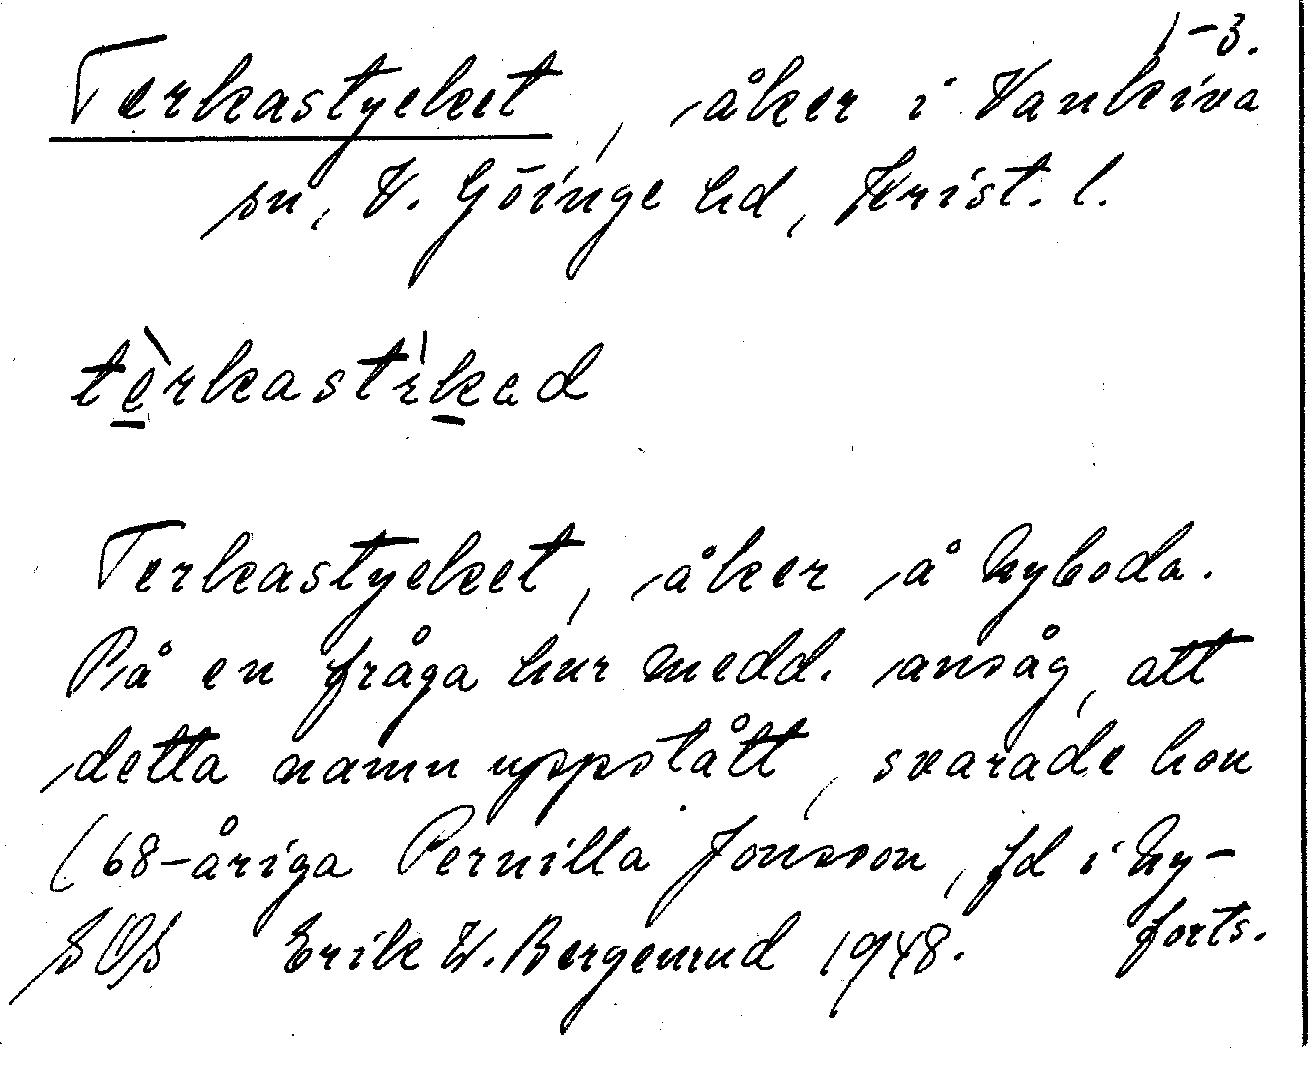 1-3.
Terkastycket, åker i Vankiva
sn, V. Göinge hd, Krist. l.
tèrkastìkad
Terkastycket, åker å Nyboda.
På en fråga hur medd. ansåg, att
detta namn uppstått, svarade hon
(68-åriga Pernilla Jonsson, fd i Ny-
SOS Erik W. Bergenrud 1948. forts.